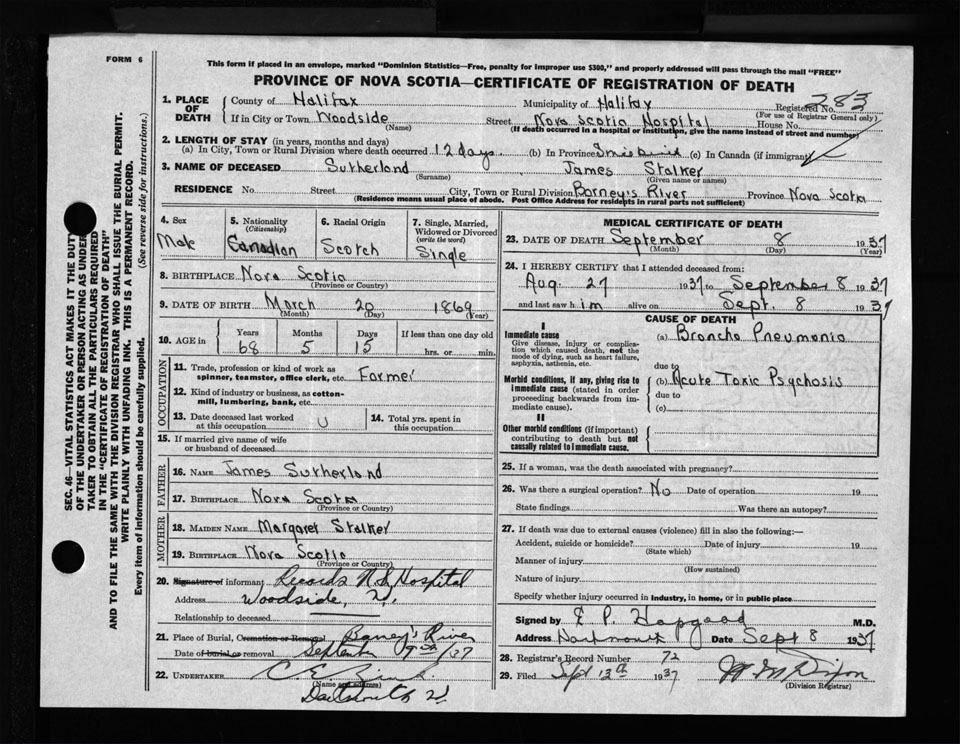 FORM 6
This form if placed in an envelope, marked "Dominion Statistics—Free, penalty for improper use $300," and properly addressed will pass through the mail "FREE"
PROVINCE OF NOVA SCOTIA—CERTIFICATE OF REGISTRATION OF DEATH
1. PLACE OF DEATH County of Halifax Municipality of Halifax Registered No. 283
(For use of Registrar General only)
If in City or Town Woodside Street Nova Scotia Hospital House No.
(Name) (If death occurred in a hospital or institution, give the name instead of street and number)
2. LENGTH OF STAY (in years, months and days)
(a) In City, Town or Rural Division where death occurred 12 days. (b) In Province Since birth (c) In Canada (if immigrant)
3. NAME OF DECEASED Sutherland James Stalker
(Surname) (Given name or names)
RESIDENCE No. Street City, Town or Rural Division Barney's River Province Nova Scotia
(Residence means usual place of abode. Post Office Address for residents in rural parts not sufficient)
4. Sex Male
5. Nationality (Citizenship) Canadian
6. Racial Origin Scotch
7. Single, Married, Widowed or Divorced (write the word) Single
8. BIRTHPLACE Nova Scotia
(Province or Country)
9. DATE OF BIRTH March 20 1869
(Month) (Day) (Year)
10. AGE in Years 68 Months 5 Days 15 If less than one day old hrs. or min.
OCCUPATION
11. Trade, profession or kind of work as spinner, teamster, office clerk, etc. Farmer
12. Kind of industry or business, as cotton-mill, lumbering, bank, etc.
13. Date deceased last worked at this occupation U
14. Total yrs. spent in this occupation
15. If married give name of wife or husband of deceased
FATHER
16. NAME James Sutherland
17. BIRTHPLACE Nova Scotia
(Province or Country)
MOTHER
18. MAIDEN NAME Margaret Stalker
19. BIRTHPLACE Nova Scotia
(Province or Country)
20. Signature of informant Records N.S. Hospital
Address Woodside,
Relationship to deceased
21. Place of Burial, Cremation or Removal Barney's River
Date of burial or removal September 9th/37
22. UNDERTAKER C. E.
(Name and address)
Dartmouth
MEDICAL CERTIFICATE OF DEATH
23. DATE OF DEATH September 8 1937
(Month) (Day) (Year)
24. I HEREBY CERTIFY that I attended deceased from:
Aug. 27 1937 to September 8 1937
and last saw him alive on Sept. 8 1937
CAUSE OF DEATH
I
Immediate cause
Give disease, injury or complication which caused death, not the mode of dying, such as heart failure, asphyxia, asthenia, etc.
(a) Broncho Pneumonia
due to
Morbid conditions, if any, giving rise to immediate cause (stated in order proceeding backwards from immediate cause).
(b) Acute Toxic Psychosis
due to
(c)
II
Other morbid conditions (if important) contributing to death but not causally related to immediate cause.
25. If a woman, was the death associated with pregnancy?
26. Was there a surgical operation? No Date of operation 19
State findings Was there an autopsy?
27. If death was due to external causes (violence) fill in also the following:—
Accident, suicide or homicide? Date of injury 19
(State which)
Manner of injury
(How sustained)
Nature of injury
Specify whether injury occurred in industry, in home, or in public place
Signed by E. P. Hapgood M.D.
Address Dartmouth Date Sept 8 1937
28. Registrar's Record Number 72
29. Filed Sept 13th 1937
(Division Registrar)
SEC. 46—VITAL STATISTICS ACT MAKES IT THE DUTY
OF THE UNDERTAKER OR PERSON ACTING AS UNDER-
TAKER TO OBTAIN ALL THE PARTICULARS REQUIRED
IN THE "CERTIFICATE OF REGISTRATION OF DEATH"
AND TO FILE THE SAME WITH THE DIVISION REGISTRAR WHO SHALL ISSUE THE BURIAL PERMIT.
WRITE PLAINLY WITH UNFADING INK. THIS IS A PERMANENT RECORD.
Every item of information should be carefully supplied. (See reverse side for instructions.)